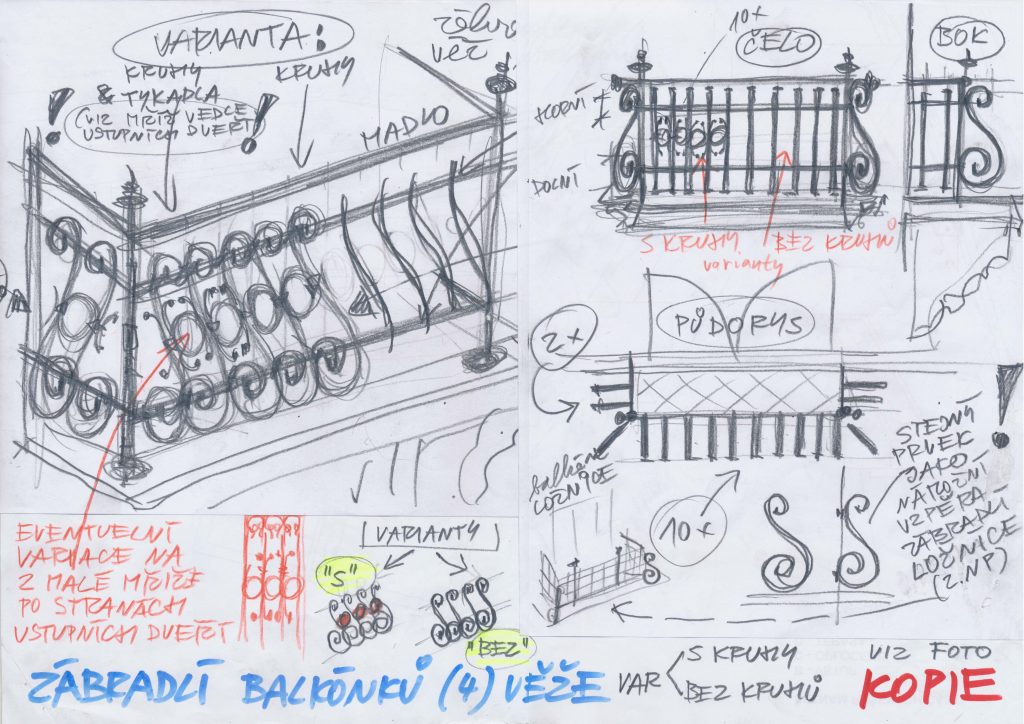 VARIANTA:
KRUHY
& TYKADLA
(VIZ MŘÍŽ VEDLE
VSTUPNÍCH DVEŘÍ)
!
!
KRUHY
věž
MADLO
10x
ČELO
BOK
HORNÍ
DOLNÍ
S KRUHY
BEZ KRUHŮ
varianty
PŮDORYS
2x
10x
balkón
LOŽNICE
!
STEJNÝ
PRVEK
JAKO
NÁROŽNÍ
VZPĚRA
ZÁBRADLÍ
LOŽNICE
(2.NP)
EVENTUELNÍ
VARIACE NA
2 MALÉ MŘÍŽE
PO STRANÁCH
VSTUPNÍCH DVEŘÍ
VARIANTY
"S"
"BEZ"
ZÁBRADLÍ BALKÓNKŮ (4) VĚŽE
VAR
S KRUHY
BEZ KRUHŮ
VIZ FOTO
KOPIE